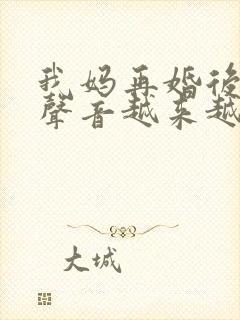 我妈再婚後
聲音越来越
大城